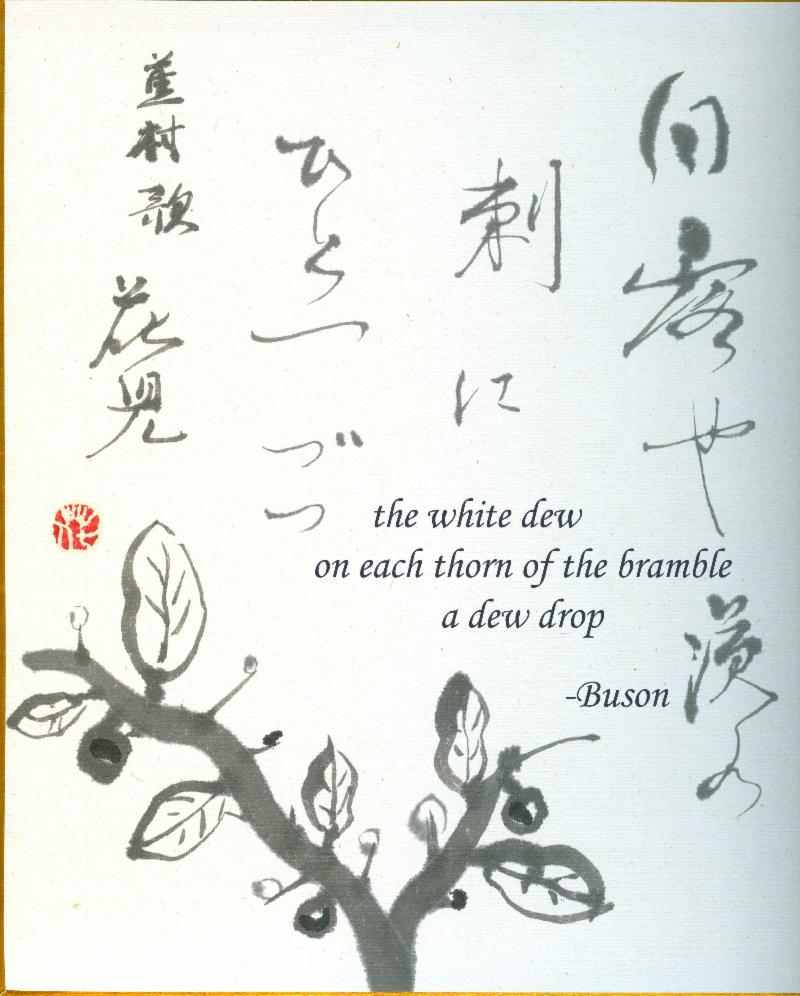 白露や茨の
刺に
ひとつづつ
蕪村歌 花見
the white dew
on each thorn of the bramble
a dew drop
-Buson